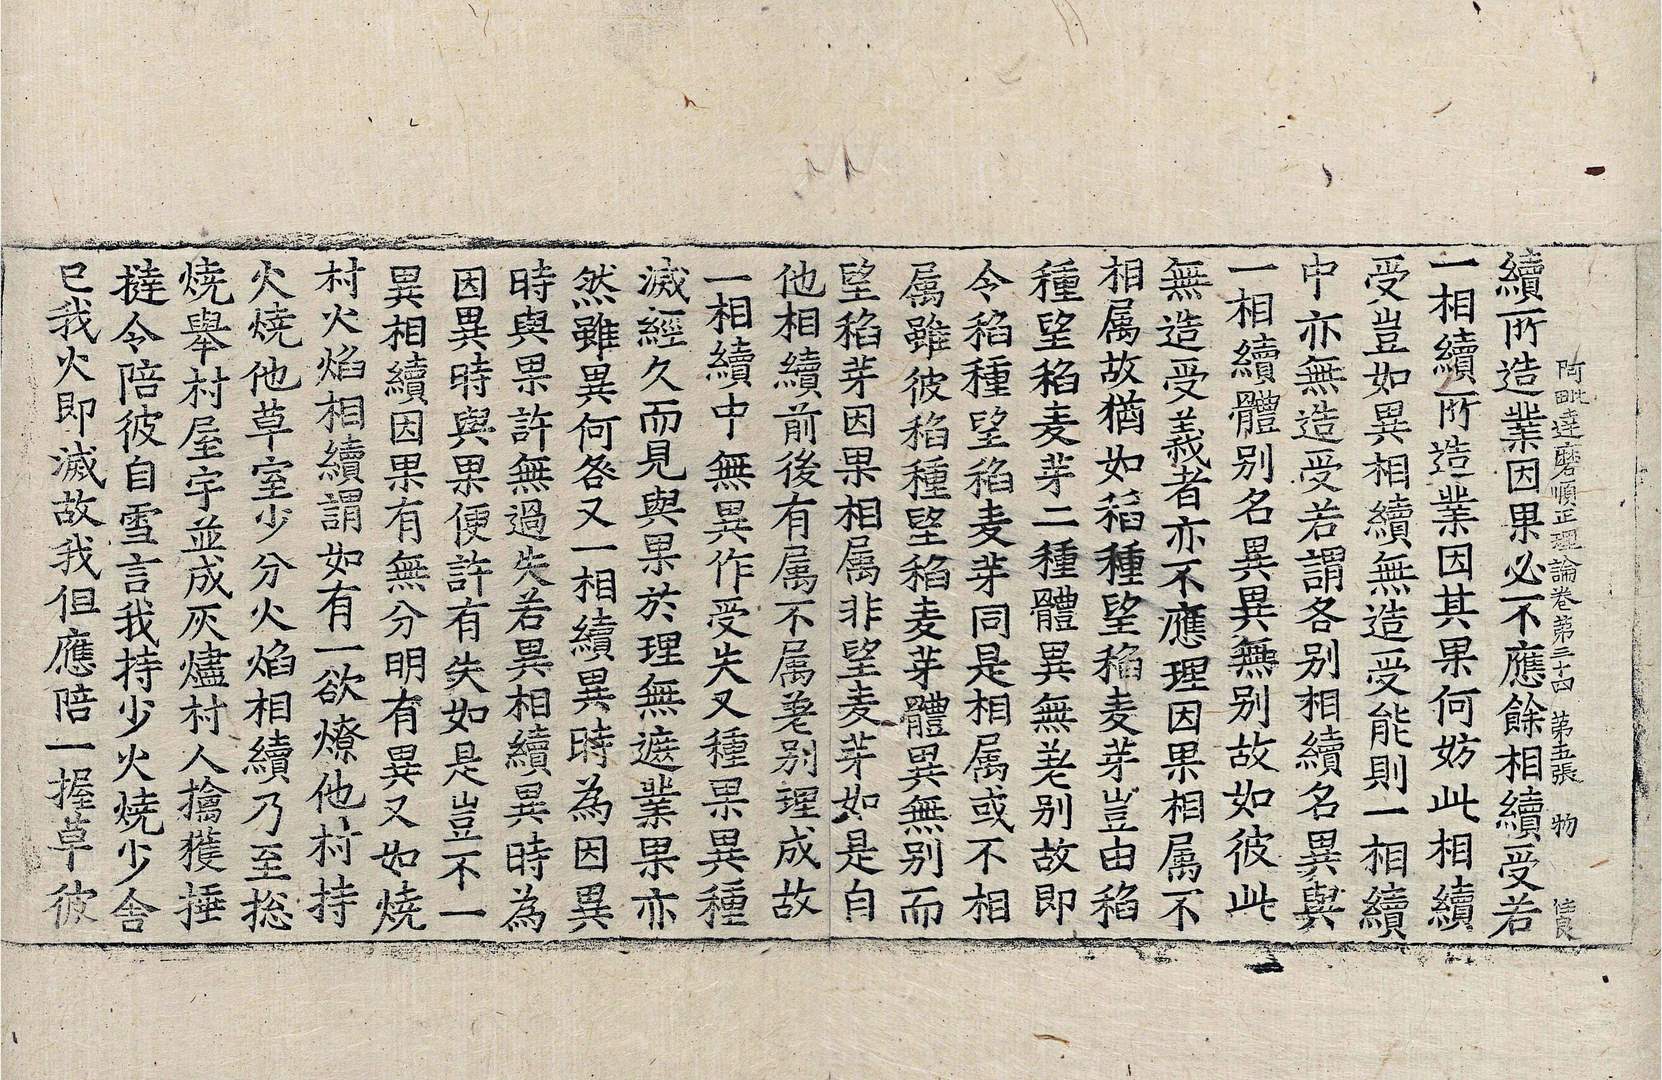 阿毗達磨順正理論卷第三十四　第五張　物　信良
續所造業因果必不應餘相續受若
一相續所造業因其果何妨此相續
受豈如異相續無造受能則一相續
中亦無造受若謂各別相續名異與
一相續體別名異異無別故如彼此
無造受義者亦不應理因果相属不
相属故猶如稻種望稻麦芽豈由稻
種望稻麦芽二種體異無差別故即
令稻種望稻麦芽同是相属或不相
属雖彼稻種望稻麦芽體異無別而
望稻芽因果相属非望麦芽如是自
他相續前後有属不属差別理成故
一相續中無異作受失又種果異種
滅經久而見與果於理無遮業果亦
然雖異何咎又一相續異時為因異
時與果許無過失若異相續異時為
因異時與果便許有失如是豈不一
異相續因果有無分明有異又如燒
村火焰相續謂如有一欲燎他村持
火燒他草室少分火焰相續乃至捴
燒舉村屋宇並成灰燼村人擒獲捶
撻令陪彼自雪言我持少火燒少舍
已我火即滅故我但應陪一握草彼